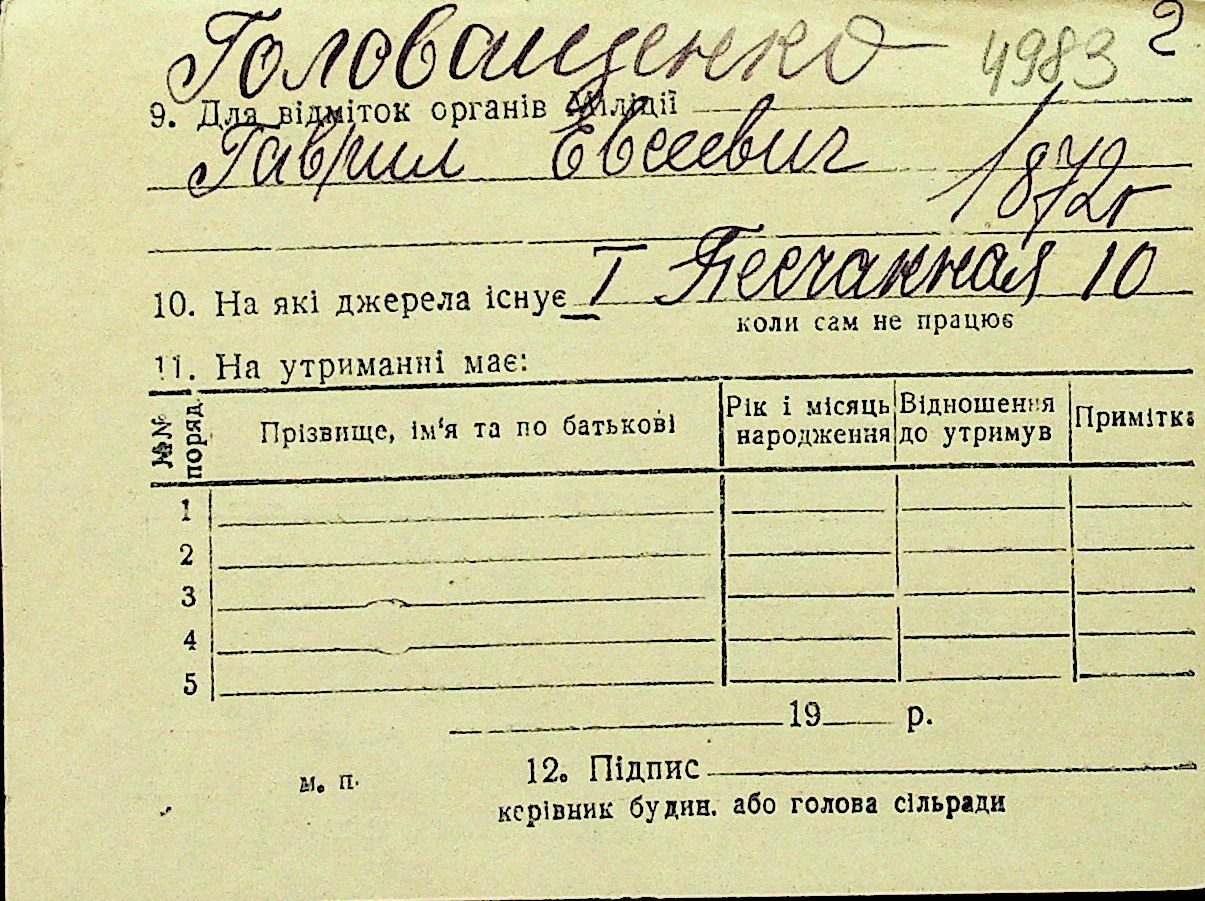 Головащенко 4983 2
9. Для відміток органів Міліції
Гаврил Евсеевич 1872г
10. На які джерела існує I Песчанная 10
коли сам не працює
11. На утриманні має:
№№ поряд. Прізвище, ім'я та по батькові Рік і місяць народження Відношення до утримув Примітка
1
2
3
4
5
19 р.
м. п. 12. Підпис
керівник будин. або голова сільради